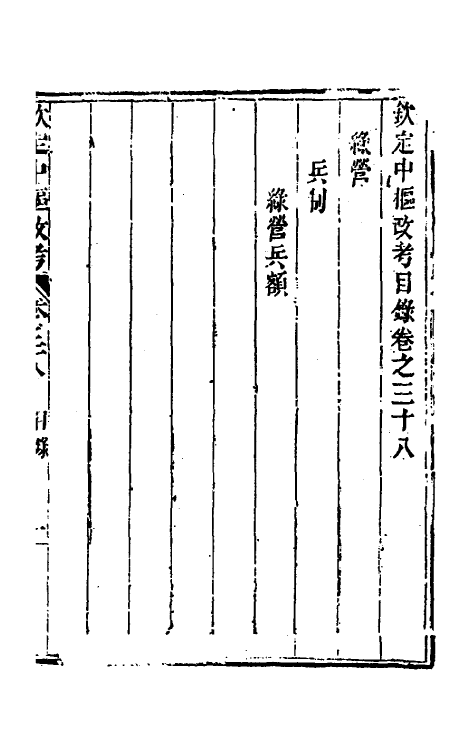 欽定中樞政考目錄卷之三十八
綠營
兵制
綠營兵額
欽定中樞政考 卷之三十八 目錄 一